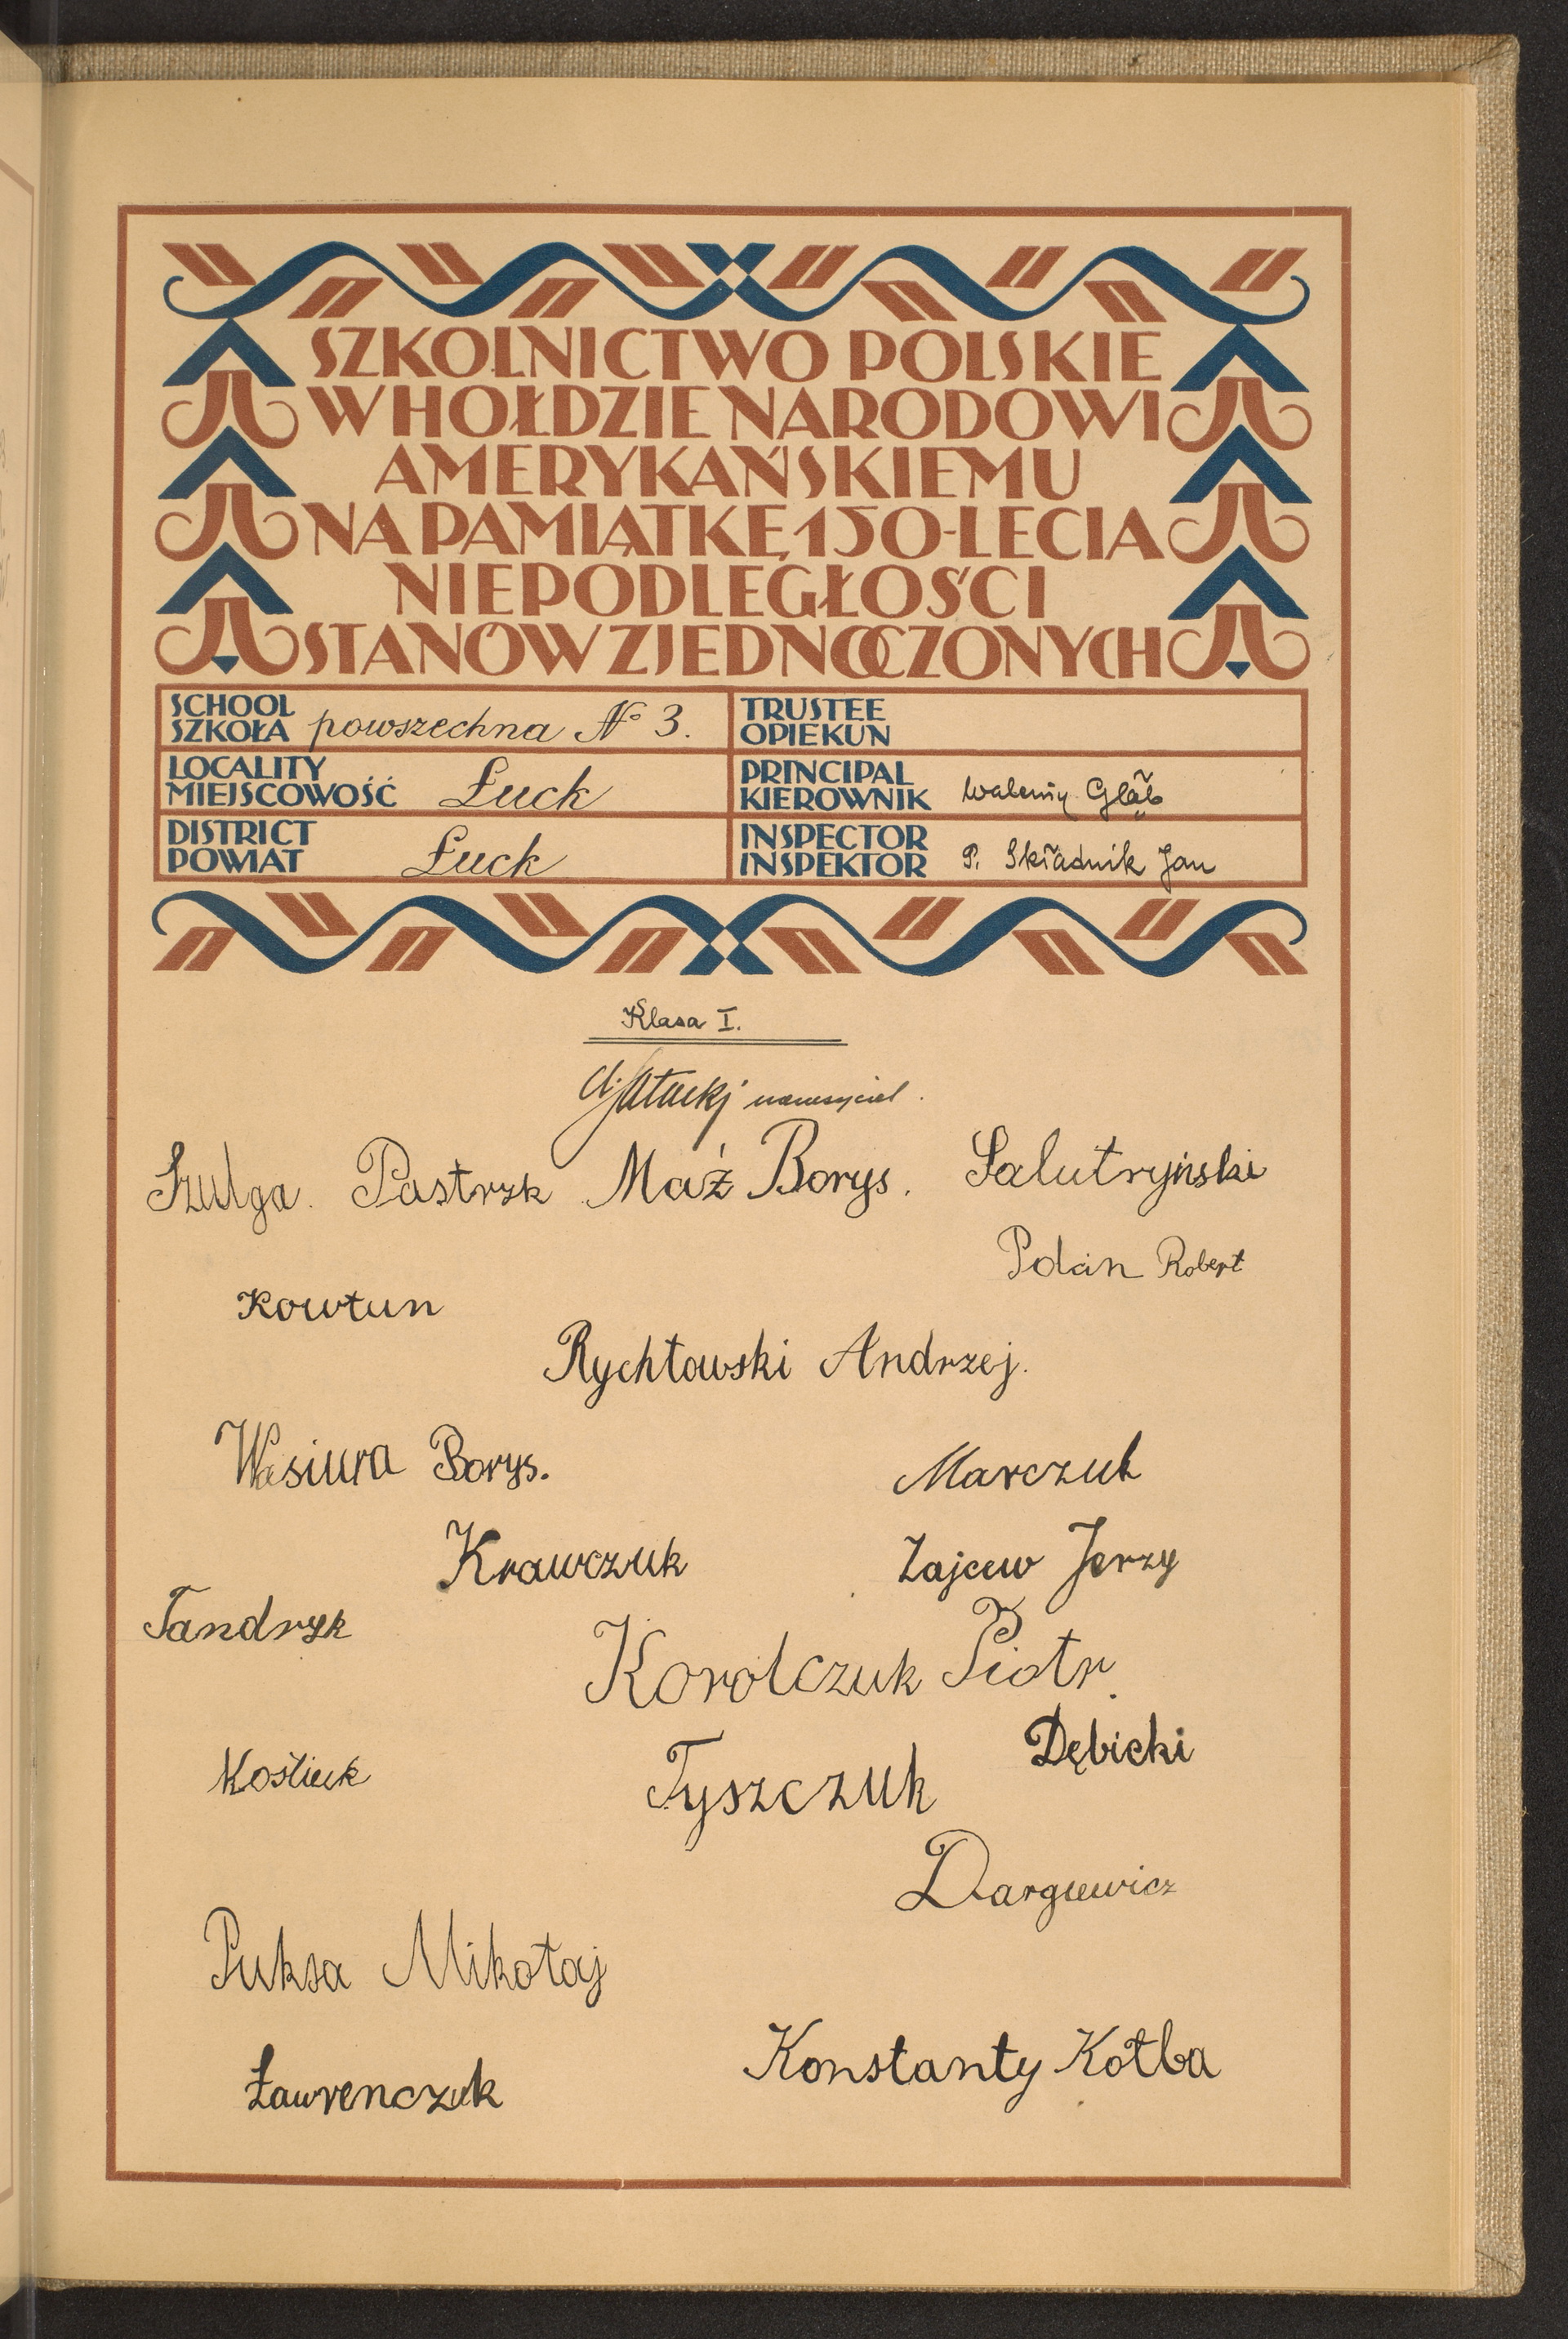 SZKOLNICTWO POLSKIE
W HOŁDZIE NARODOWI
AMERYKAŃSKIEMU
NA PAMIĄTKĘ 150-LECIA
NIEPODLEGŁOŚCI
STANÓW ZJEDNOCZONYCH
SCHOOL
SZKOŁA powszechna № 3.
TRUSTEE
OPIEKUN
LOCALITY
MIEJSCOWOŚĆ Łuck
PRINCIPAL
KIEROWNIK Walenty Głąb
DISTRICT
POWIAT Łuck
INSPECTOR
INSPEKTOR P. Składnik Jan
Klasa I.
nauczyciel.
Szulga. Pastrzk Maź Borys. Salutryński
Podan Robert
Kowtun
Rychłowski Andrzej.
Wasiura Borys.
Marczuk
Krawczuk
Zajcew Jerzy
Tandryk
Korolczuk Piotr.
Dębicki
Kośliuk
Tyszczuk
Dargiewicz
Puksa Mikołaj
Konstanty Kołba
Ławrenczuk